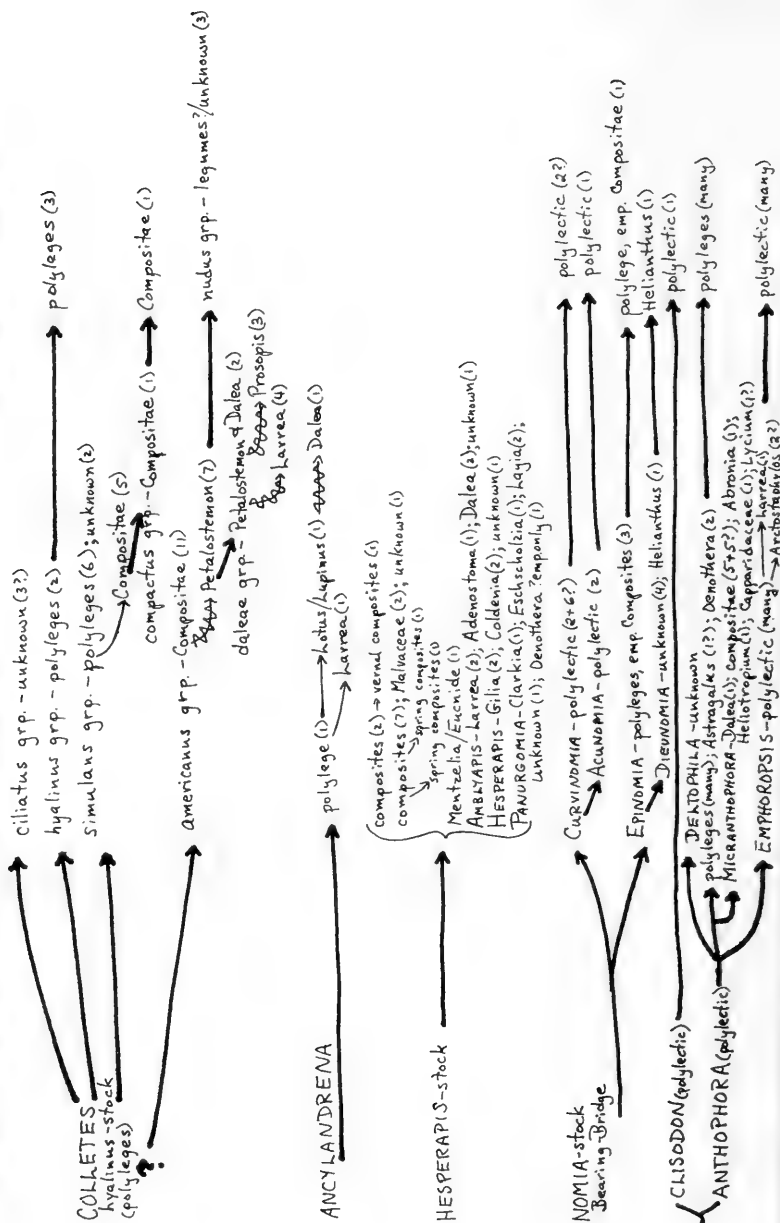 COLLETES
hyalinus-stock
(polyleges)
?
ciliatus grp.-unknown (3?)
hyalinus grp.-polyleges (2)
polyleges (3)
simulans grp.-polyleges (6); unknown (2)
Compositae (5)
compactus grp.-Compositae (1)
Compositae (1)
americanus grp.-Compositae (11)
Petalostemon (7)
nudus grp.-legumes?/unknown (3)
daleae grp.-Petalostemon & Dalea (2)
Prosopis (3)
Larrea (4)
ANCYLANDRENA
polylege (1)
Lotus/Lupinus (1)
Dalea (1)
Larrea (1)
HESPERAPIS-stock
composites (2) → vernal composites (1)
composites (7); Malvaceae (2); unknown (1)
spring composites (1)
spring composites (1)
Mentzelia/Eucnide (1)
AMBLYAPIS-Larrea (2); Adenostoma (1); Dalea (2); unknown (1)
HESPERAPIS-Gilia (2); Coldenia (2); unknown (1)
PANURGOMIA-Clarkia (1); Eschscholzia (1); Layia (2);
unknown (1); Oenothera? emp. only (1)
NOMIA-stock
Bearing-Bridge
CURVINOMIA-polylectic (2+6?)
polylectic (2?)
ACUNOMIA-polylectic (2)
polylectic (1)
EPINOMIA-polyleges, emp. Composites (3)
polylege, emp. Compositae (1)
DIEUNOMIA-unknown (4); Helianthus (1)
Helianthus (1)
CLISODON (polylectic)
polylectic (1)
ANTHOPHORA (polylectic)
DELTOPHILA-unknown
polyleges (many); Astragalus (1?); Oenothera (2)
polyleges (many)
MICRANTHOPHORA-Dalea (1); Compositae (5+5?); Abronia (1);
Heliotropium (1); Capparidaceae (1); Lycium (1?)
EMPHOROPSIS-polylectic (many)
Larrea (1)
Arctostaphylos (2?)
polylectic (many)